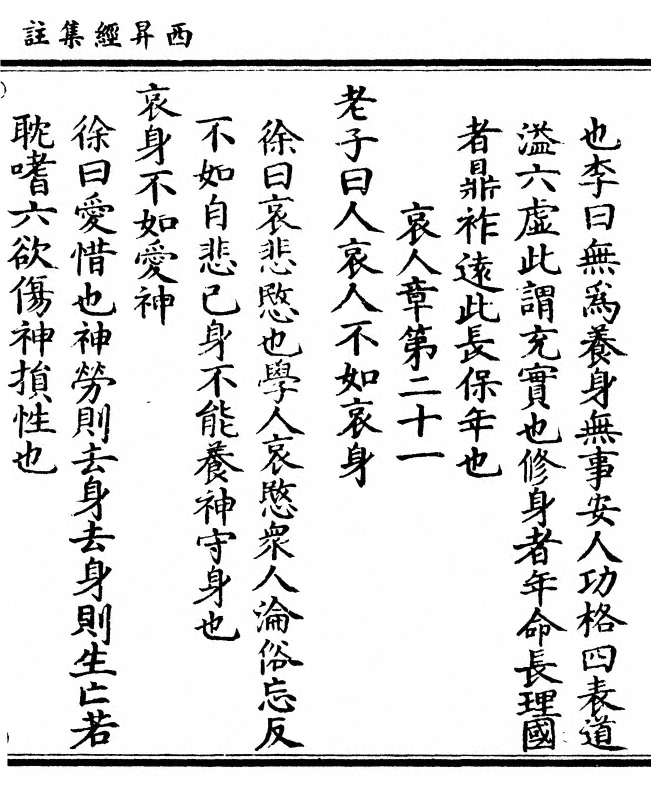 西昇經集註
也李曰無爲養身無事安人功格四表道
溢六虛此謂充實也修身者年命長理國
者鼎祚遠此長保年也
哀人章第二十一
老子曰人哀人不如哀身
徐曰哀悲愍也學人哀愍衆人淪俗忘反
不如自悲己身不能養神守身也
哀身不如愛神
徐曰愛惜也神勞則去身去身則生亡若
耽嗜六欲傷神損性也